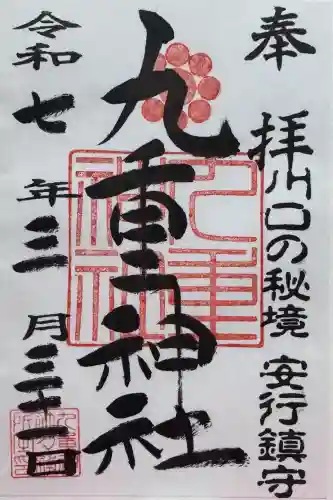 奉拝 川口の秘境 安行鎮守
九重神社
令和七年三月三十日
九重
神社